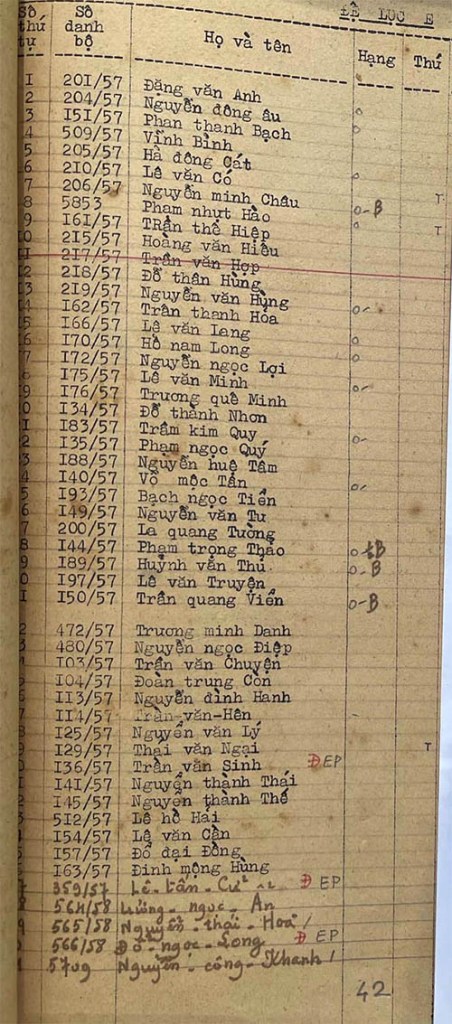 ĐỀ LỤC E
Số thứ tự Số danh bộ Họ và tên Hạng Thứ
1 201/57 Đặng văn Anh
2 204/57 Nguyễn đông âu o
3 151/57 Phan thanh Bạch o
4 509/57 Vĩnh Bình
5 205/57 Hà đông Cát
6 210/57 Lê văn Có o
7 206/57 Nguyễn minh Châu T
8 5853 Phạm nhựt Hào o-B
9 161/57 TRần thế Hiệp o T
0 215/57 Hoàng văn Hiếu
11 217/57 Trần văn Hợp
12 218/57 Đỗ thân Hùng
3 219/57 Nguyễn văn Hùng
4 162/57 Trần thanh Hóa o-
5 166/57 Lê văn Lang
6 170/57 Hồ nam Long o
7 172/57 Nguyễn ngọc Lợi o
175/57 Lê văn Minh
9 176/57 Trương quế Minh o-
0 134/57 Đỗ thành Nhơn
1 183/57 Trầm kim Quý
2 135/57 Phạm ngọc Quý o-
3 188/57 Nguyễn huệ Tâm
4 140/57 Võ mộc Tấn
5 193/57 Bạch ngọc Tiển o-
6 149/57 Nguyễn văn Tư
7 200/57 La quang Tường
8 144/57 Phạm trọng Thảo
9 189/57 Huỳnh văn Thu o-B
0 197/57 Lê văn Truyện
1 150/57 Trần quang Viển o-B
2 472/57 Trương minh Danh
3 480/57 Nguyễn ngọc Điệp
103/57 Trần văn Chuyện
104/57 Đoàn trung Còn
113/57 Nguyễn đình Hanh
114/57 Trần-văn-Hên
125/57 Nguyễn văn Lý
129/57 Thái văn Ngại T
136/57 Trần văn Sinh Đ EP
141/57 Nguyễn thành Thái
145/57 Nguyễn thành Thế
512/57 Lê hồ Hải
154/57 Lê văn Cần
157/57 Đỗ đại Đồng
163/57 Đinh mộng Hùng
359/57 Lê-tấn-Cử Đ EP
564/58 Lương-ngọc-Ân
565/58 Nguyễn-thái-Hoà
566/58 Đỗ-ngọc-Long Đ EP
5709 Nguyễn-công-Khanh
42